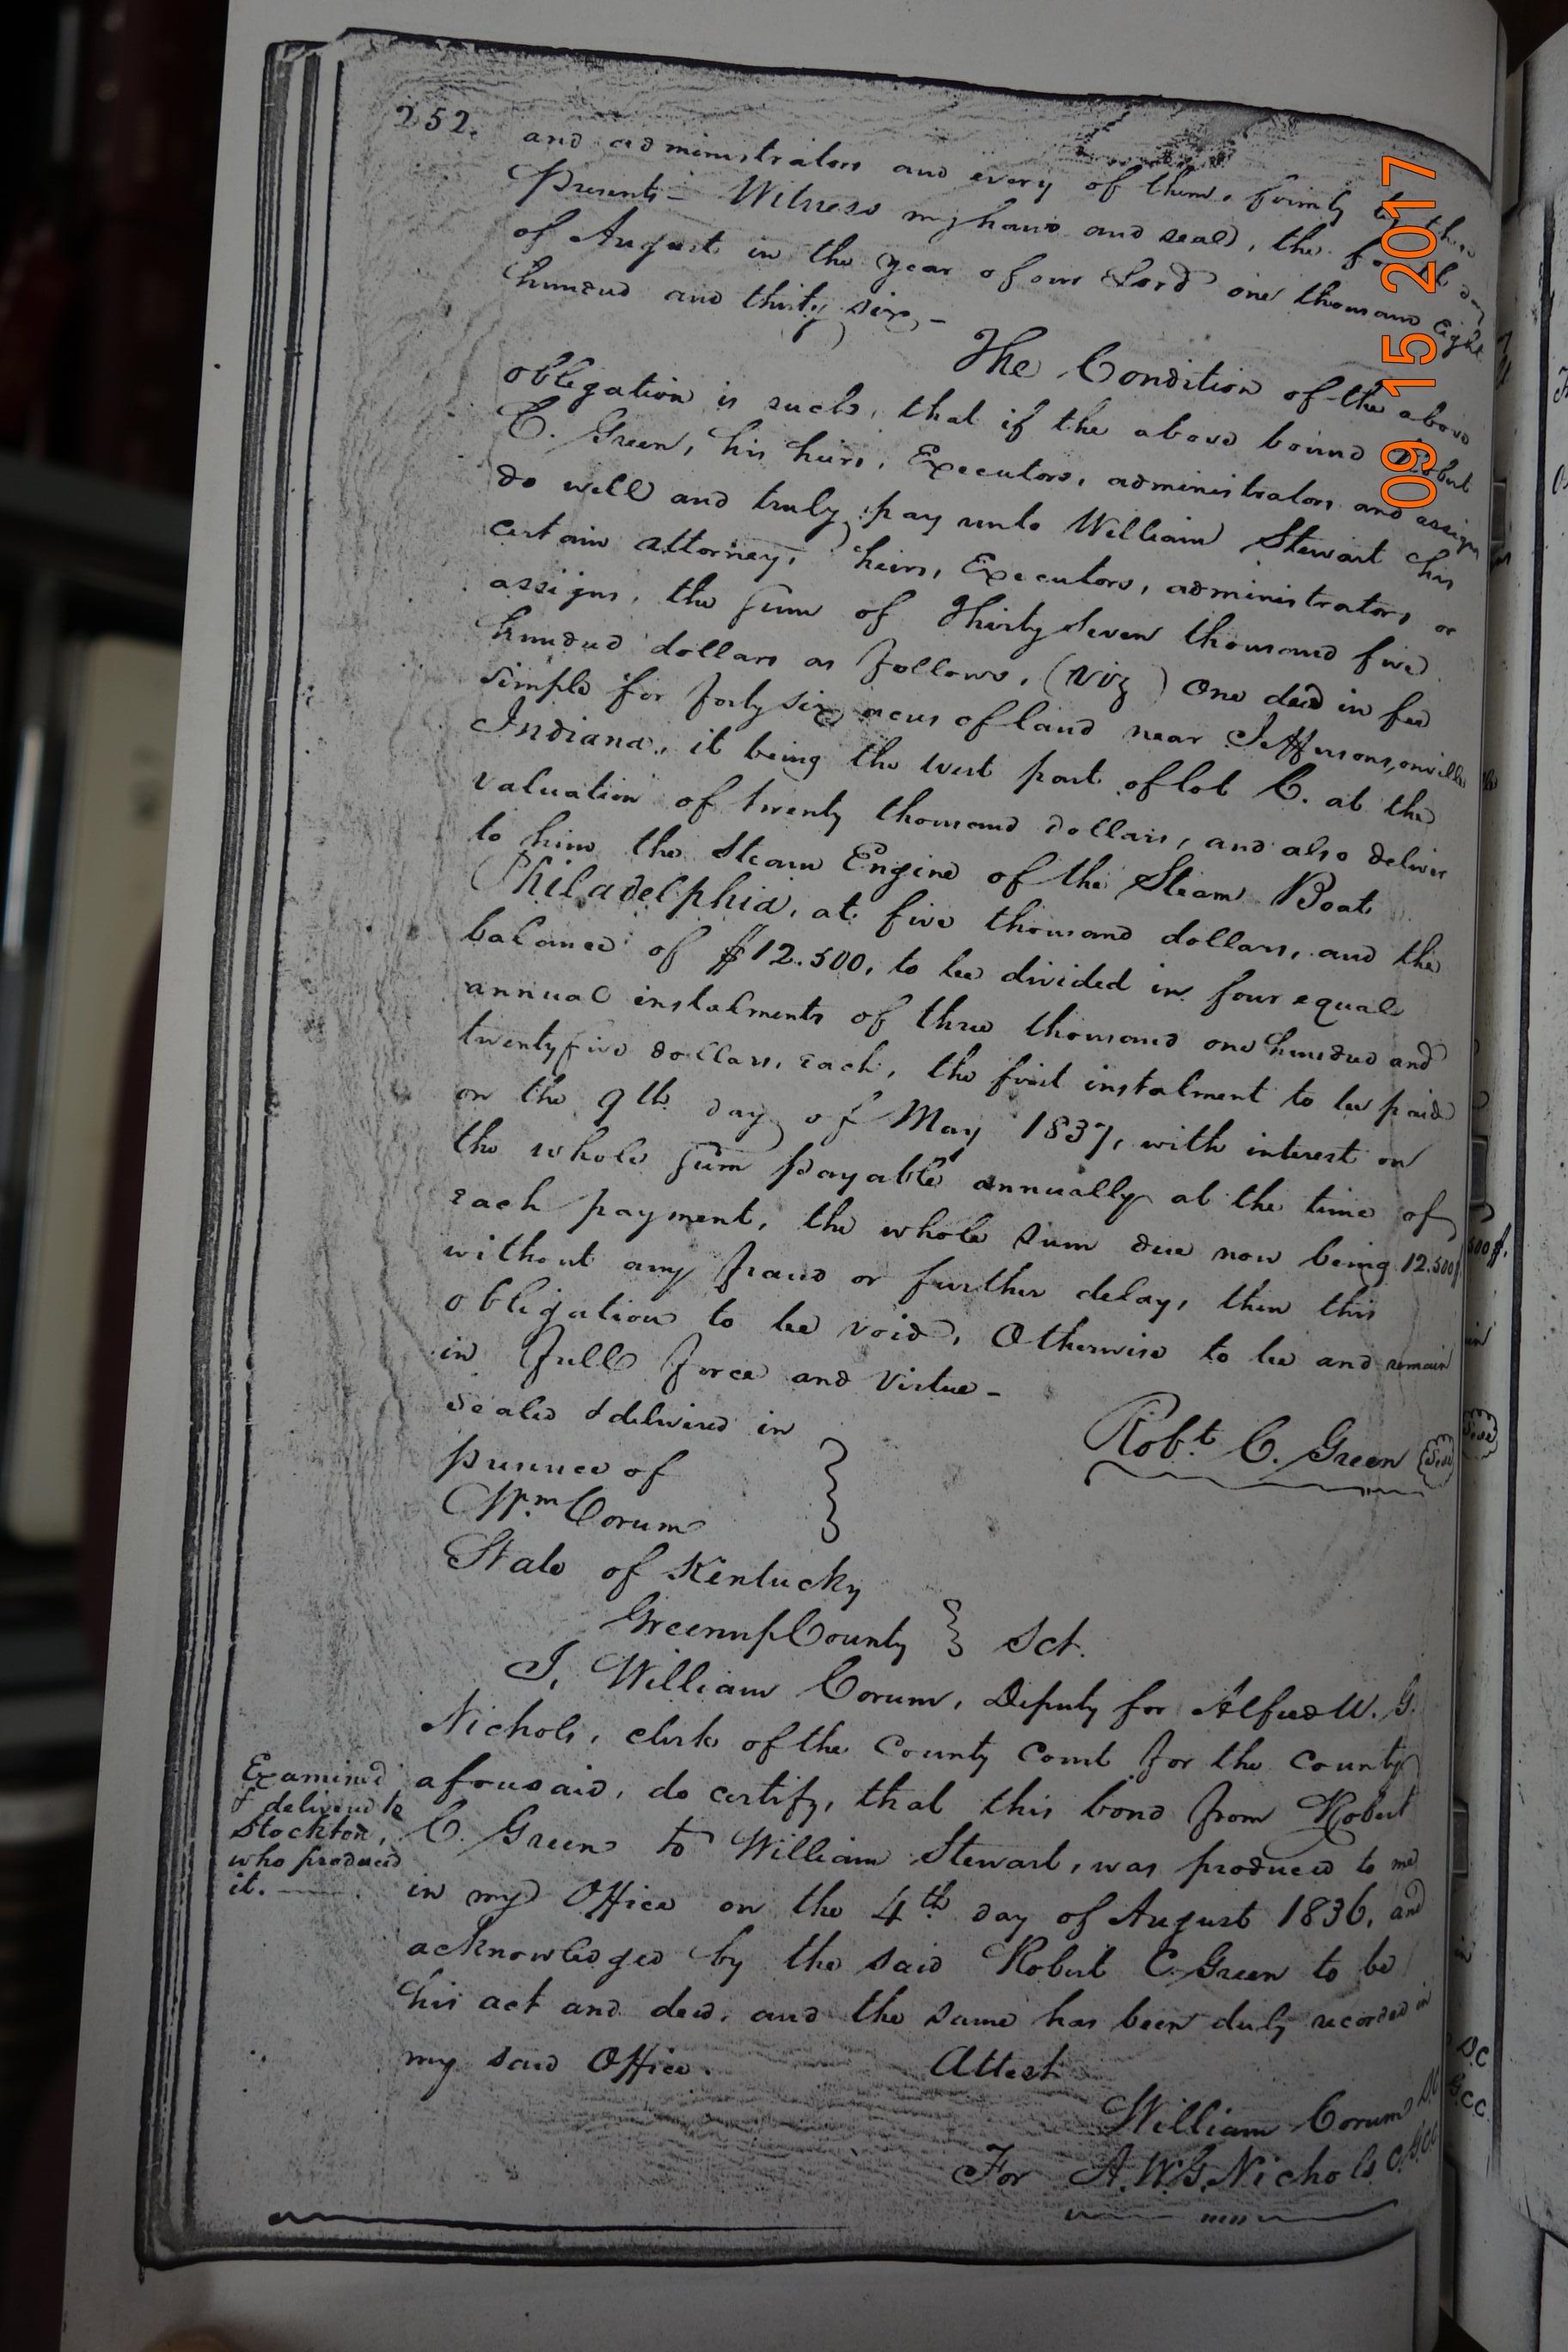 252.
and administrators and every of them, firmly by these
Presents - Witness my hand and seal, the fourth day
of August in the year of our Lord one thousand Eight
hundred and thirty six, -
The Condition of the above
obligation is such, that if the above bound Robert
C. Green, his heirs, Executors, administrators and assigns
do well and truly pay unto William Stewart his
certain attorney, heirs, Executors, administrators, or
assigns, the sum of Thirty seven thousand five
hundred dollars as follows, (viz) One deed in fee
simple for forty six acres of land near Jeffersons,onville
Indiana, it being the west part of lot C. at the
valuation of twenty thousand dollars, and also deliver
to him the Steam Engine of the Steam Boat
Philadelphia, at five thousand dollars, and the
balance of $12.500, to be divided in four equal
annual instalments of three thousand one hundred and
twenty five dollars, each, the first instalment to be paid
on the 9th day of May 1837, with interest on
the whole sum payable annually at the time of
each payment, the whole sum due now being 12.500$,
without any fraud or further delay, then this
obligation to be void, Otherwise to be and remain
in full force and virtue -
Sealed & delivered in
presence of
Wm. Corum
Robt. C. Green Seal
State of Kentucky
Greenup County } Sct.
I, William Corum, Deputy for Alfred W. G.
Nichols, clerk of the County Court for the county
aforesaid, do certify, that this bond from Robert
C. Green to William Stewart, was produced to me
in my Office on the 4th day of August 1836, and
acknowledged by the said Robert C. Green to be
his act and deed, and the same has been duly recorded in
my said Office.
Attest
William Corum D.C
For A.W.G. Nichols C.G.C.C.
Examined
& delivered to
Stockton,
who produced
it.
09 15 2017